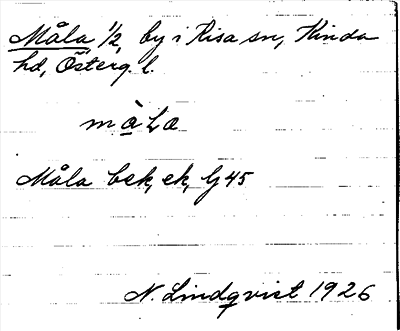 Måla 1/2, by i Kisa sn, Kinda
hd, Österg. l.
Måla bek, ek, Gj 45
N. Lindqvist 1926